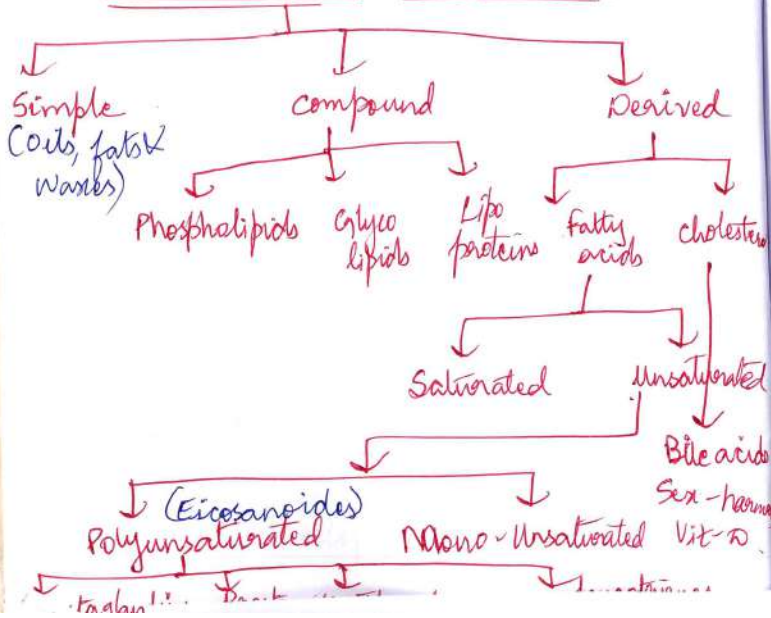 Simple
Compound
Derived
(oils, fats &
waxes)
Phospholipids
Glyco
lipids
Lipo
proteins
Fatty
acids
Cholestero
Saturated
Unsaturated
Bile acids
Sex-hormo
Vit-D
(Eicosanoides)
Polyunsaturated
Mono-Unsaturated